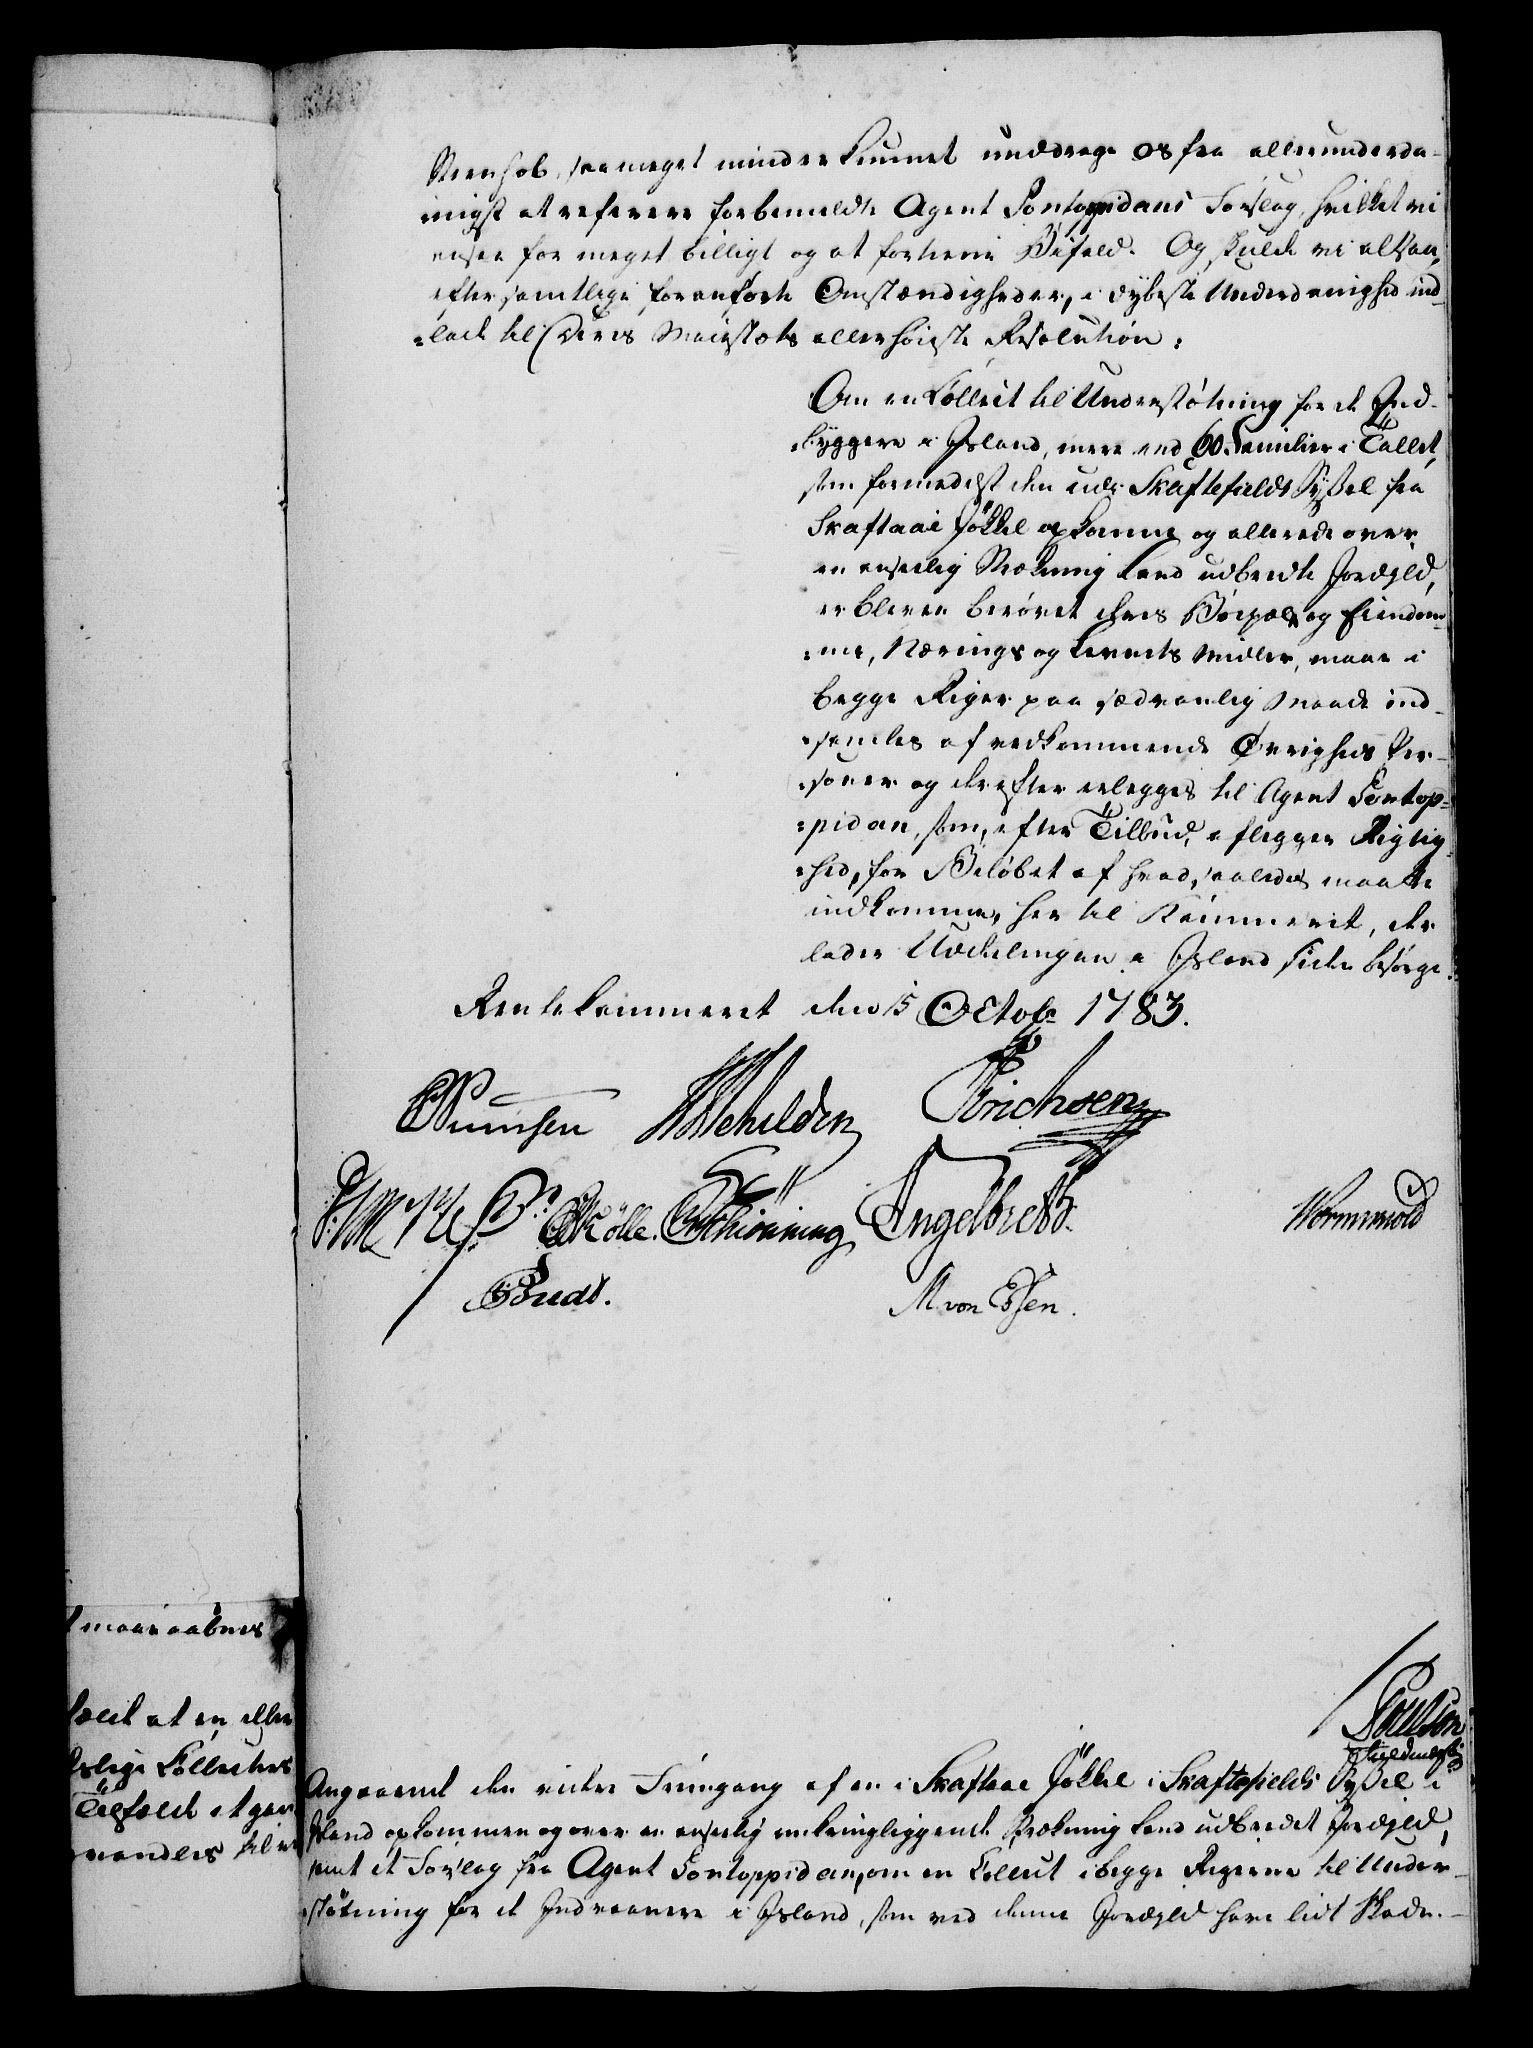 saa meget mindre kunnet unddrage os fra allerunderda-
nigst at referere forbemeldte Agent Pontoppidans Forslag, hvilket vi
ansee for meget billigt og at fortiene Bifald. Og skulde vi altsaa,
efter samtlige foranførte Omstændigheder, i dybeste Underdanighed ind-
=lade til Deres Majestæts allerhøieste Resolution:
Om en Collect til Understøtning for de Ind-
=byggere i Island, mere end 60 Familier i Tallet,
som formedelst den udi Skaftefields Syssel fra
Skaftaae Jökkel opkomne og allerede over
en anseelig Strækning Land udbredte Jordild,
er bleven berøvet deres Boepæle og Eiendom-
=me, Nærings og Levnets Midler, maae i
begge Riger paa sædvanlig Maade ind-
=samles af vedkommende Øvrigheds Per-
=soner og derefter erlegges til Agent Pontop=
=pidan, som, efter Tilbud, aflegger Rigtig-
=hed, for Beløbet af hvad saaledes maatte
indkomme, her til Kammeret, der
lader Uddelingen i Island siden besørge.
Rentekammeret den 15 Octobr 1783.
Schilden Erichsen
Mölle. Schiönning Engelbreth. Wormskiold
M von Essen.
maae aabnes
at en eller
=slige Collecter
Tilfælde et gen
til
Poulsen
Angaaende den videre Fremgang af en i Skaftaae Jökkel i Skaftefields Syssel i
Island opkommen og over en anseelig omkringliggende Strækning Land udbredet Jordild,
samt et Forslag fra Agent Pontoppidan, om en Collect i begge Rigerne til Under-
=støtning for de Indvaanere i Island, som ved denne Jordild have lidt Skade.-